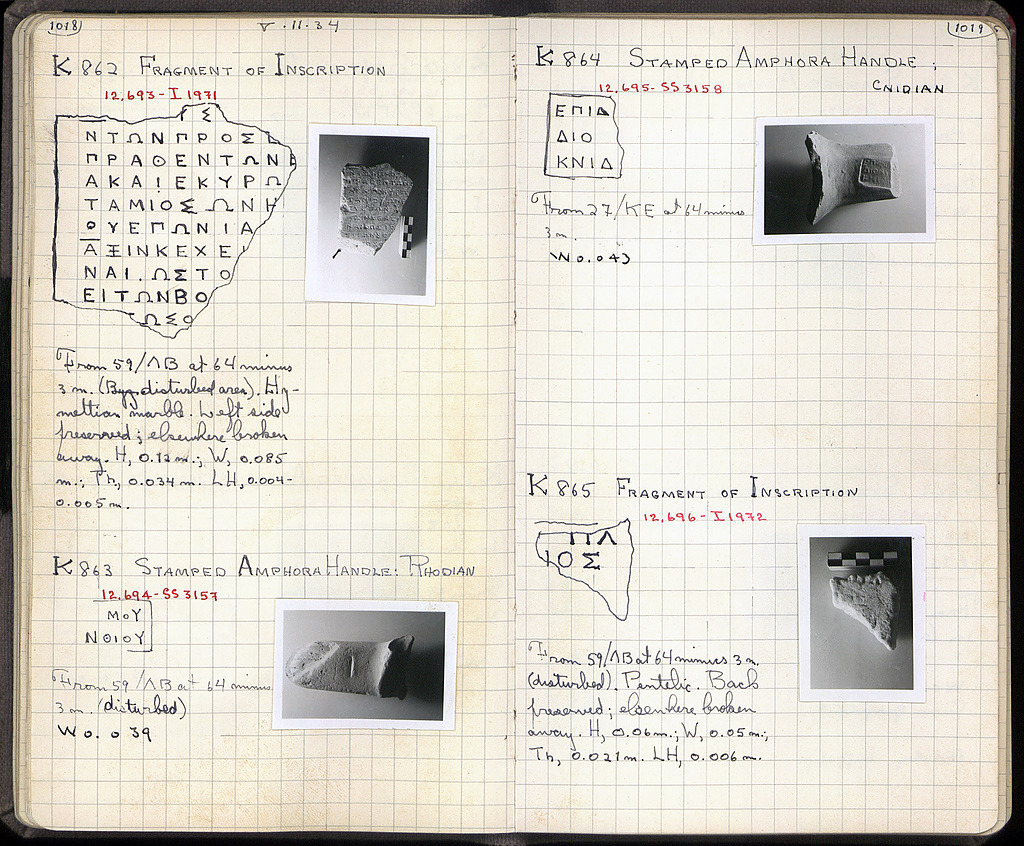 1018
V · 11 · 34
K 862 FRAGMENT OF INSCRIPTION
12,693 - I 1971
Σ
ΝΤΩΝΠΡΟΣΕ
ΠΡΑΘΕΝΤΩΝΕ
ΑΚΑΙΕΚΥΡΩ
ΤΑΜΙΟΣΩΝΗ
ΟΥΕΓΩΝΙΑ
ΑΞΙΝΚΕΧΕ
ΝΑΙ.ΩΣΤΟ
ΕΙΤΩΝΒΟ
ΩΣΟ
From 59/ΛΒ at 64 minus
3 m. (Byz. disturbed area). Hy-
mettian marble. Left side
preserved; elsewhere broken
away. H, 0.12 m.; W, 0.085
m.; Th, 0.034 m. LH, 0.004-
0.005 m.
K 863 STAMPED AMPHORA HANDLE: RHODIAN
12,694 - SS 3157
ΜΟΥ
ΝΘΙΟΥ
From 59/ΛΒ at 64 minus
3 m. (disturbed)
W 0.039
1019
K 864 STAMPED AMPHORA HANDLE:
CNIDIAN
12,695 - SS 3158
ΕΠΙΔ
ΔΙΟ
ΚΝΙΔ
From 27/ΚΕ at 64 minus
3 m.
W 0.043
K 865 FRAGMENT OF INSCRIPTION
12,696 - I 1972
ΠΛ
ΙΟΣ
From 59/ΛΒ at 64 minus 3 m.
(disturbed). Pentelic. Back
preserved; elsewhere broken
away. H, 0.06 m.; W, 0.05 m.;
Th, 0.021 m. LH, 0.006 m.